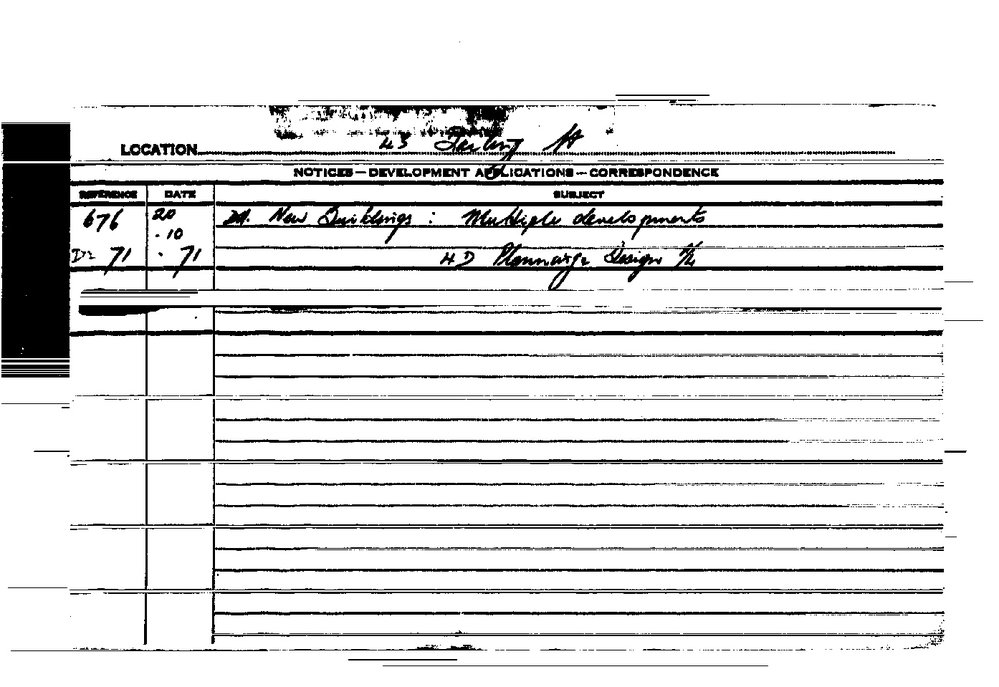 LOCATION 43 St
NOTICES — DEVELOPMENT APPLICATIONS — CORRESPONDENCE
REFERENCE DATE SUBJECT
676 20 DA. New Buildings : Multiple developments
.10
D2 71 . 71 4D Design